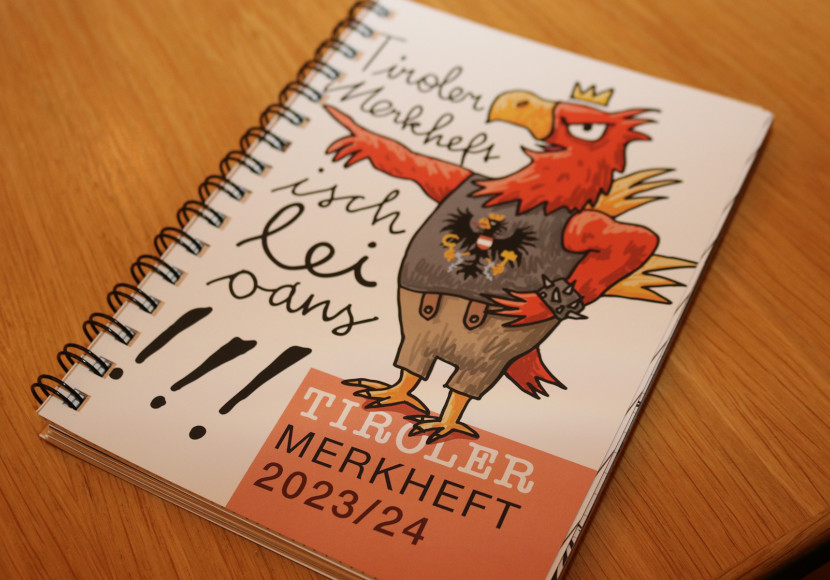 Tiroler
Merkheft
isch
lei
oans
!!!
TIROLER
MERKHEFT
2023/24